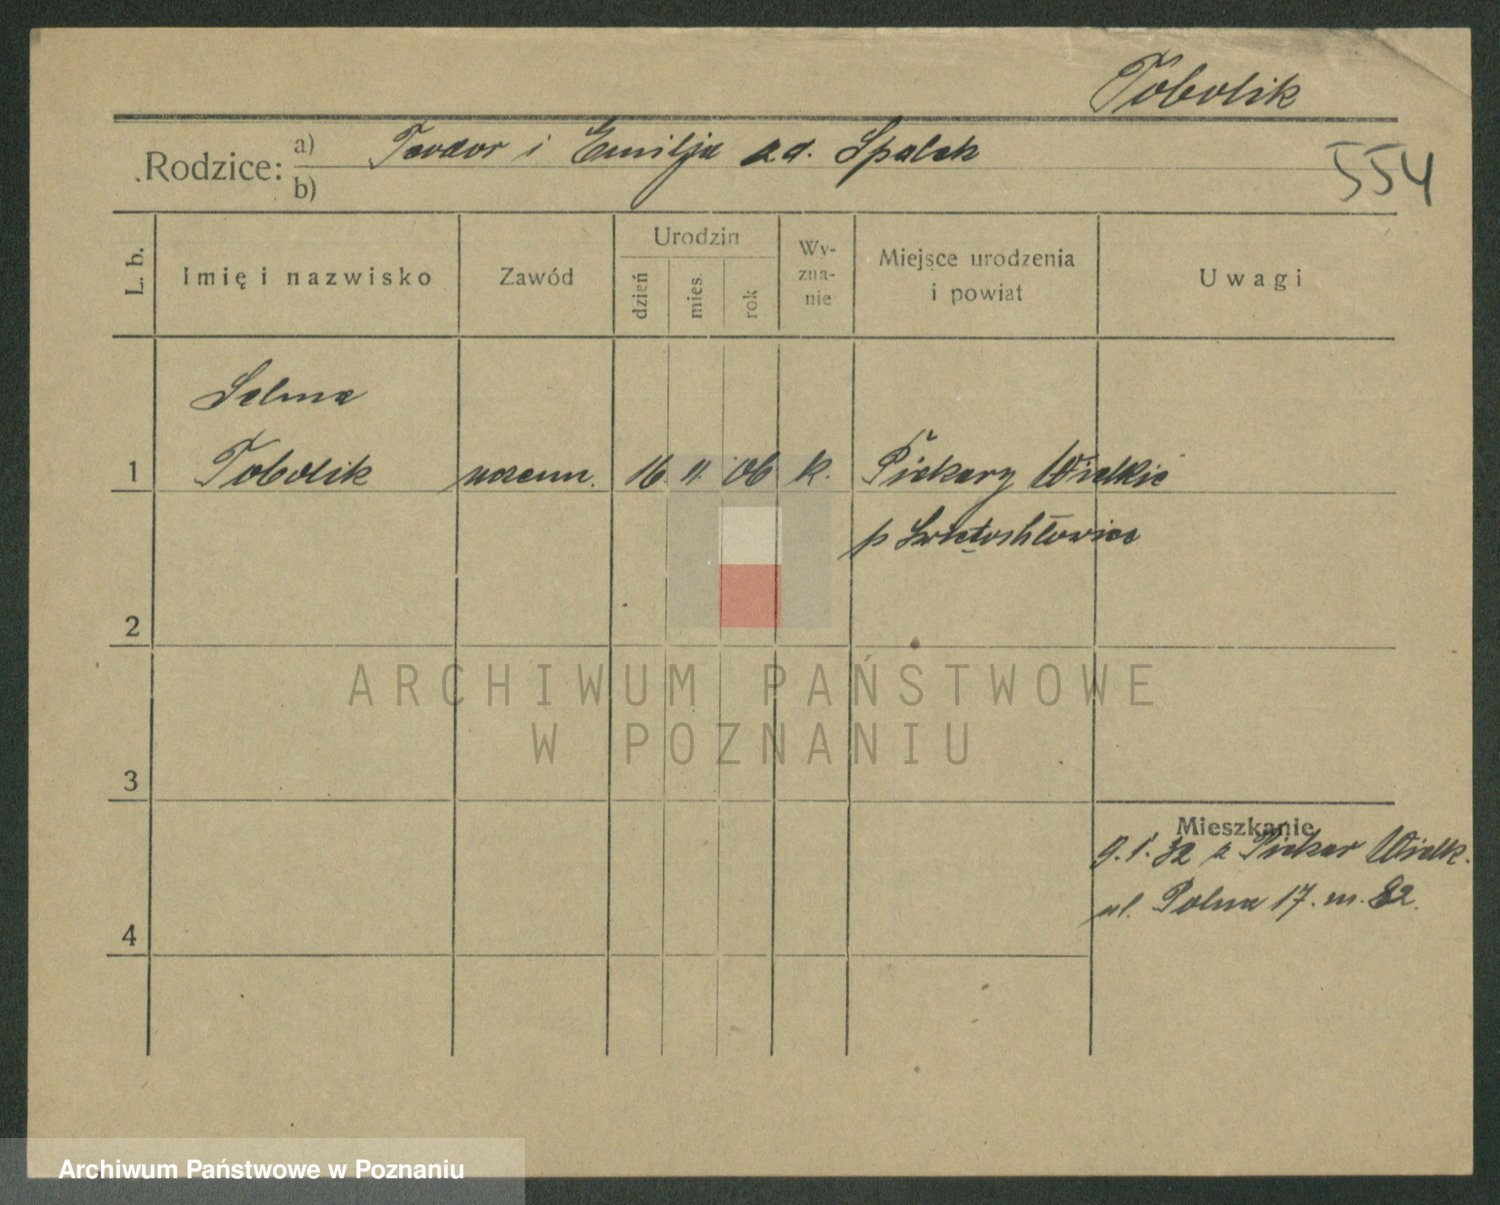 Tobolik
Rodzice: a) Teodor i Emilja zd. Spalek
b)
554
L. b.
Imię i nazwisko
Zawód
Urodzin
dzień
mies.
rok
Wy-
zna-
nie
Miejsce urodzenia
i powiat
Uwagi
Selma
1 Tobolik uczenn. 16 11 06 k. Piekary Wielkie
p Świętochłowice
2
ARCHIWUM PAŃSTWOWE
W POZNANIU
3
Mieszkanie
9.1.32 z Piekar Wielk.
ul. Polna 17. m. 82.
4
Archiwum Państwowe w Poznaniu